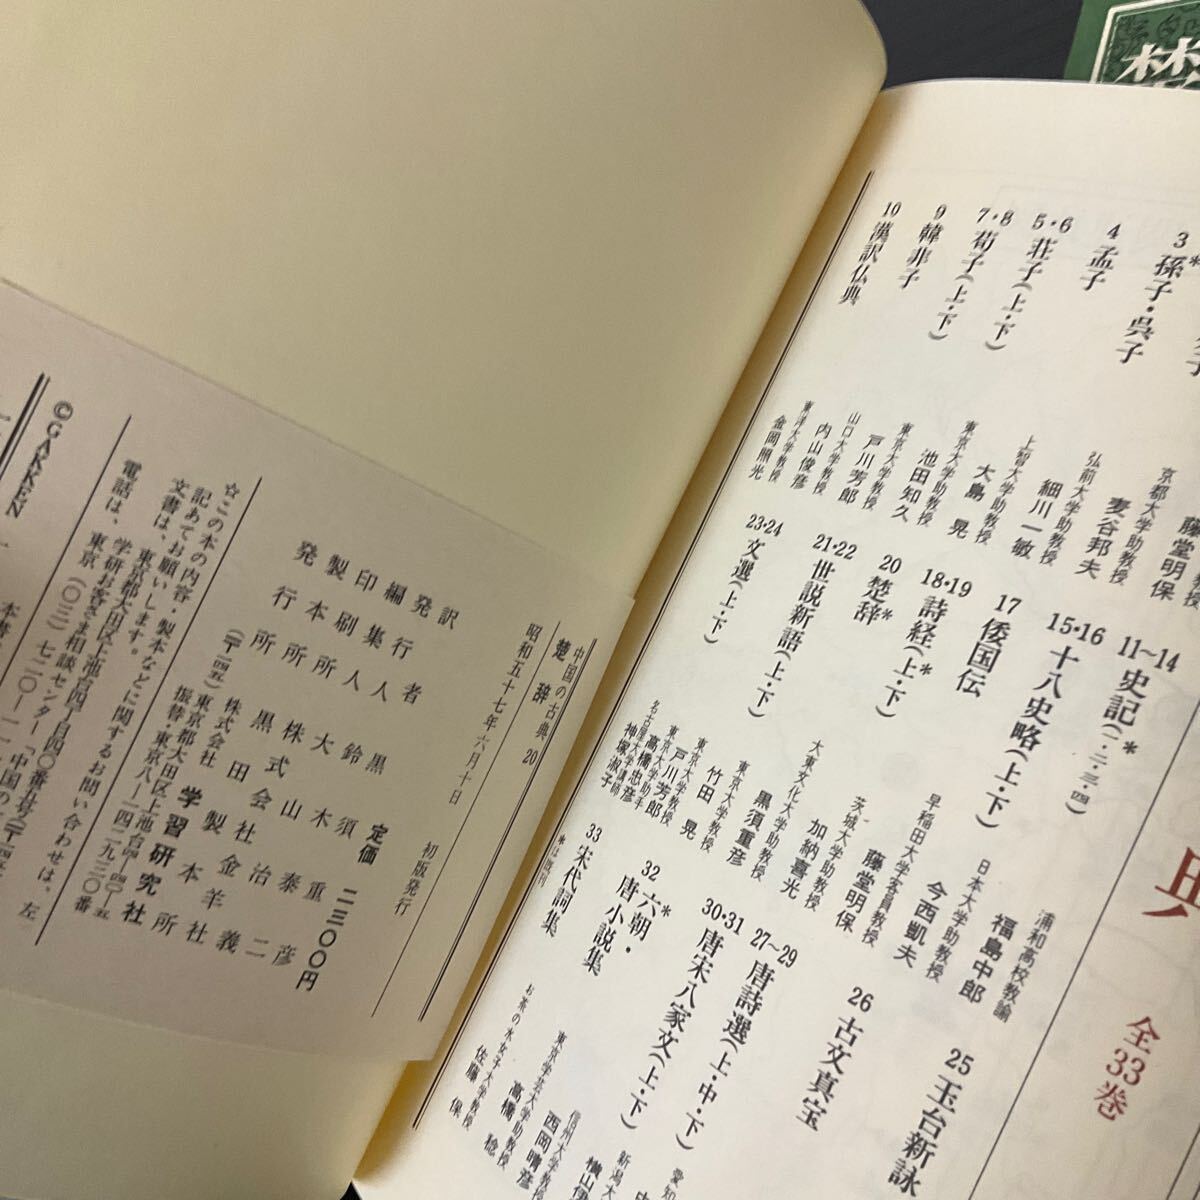 楚
典
全33巻
3 孫子・呉子*
藤堂明保
京都大学助教授
4 孟子
麦谷邦夫
弘前大学助教授
5・6 荘子(上・下)
細川一敏
上智大学助教授
7・8 荀子(上・下)
大島 晃
東京大学助教授
9 韓非子
池田知久
東京大学教授
戸川芳郎
山口大学教授
10 漢訳仏典
内山俊彦
東洋大学教授
金岡照光
11〜14 史記(一・二・三・四)*
浦和高校教諭
福島中郎
15・16 十八史略(上・下)
日本大学助教授
今西凱夫
17 倭国伝
早稲田大学客員教授
藤堂明保
18・19 詩経(上・下)*
茨城大学助教授
加納喜光
20 楚辞*
大東文化大学助教授
黒須重彦
21・22 世説新語(上・下)
東京大学助教授
竹田 晃
23・24 文選(上・下)
東京大学教授
戸川芳郎
東京大学助手
高橋忠彦
名古屋大学講師
神塚淑子
25 玉台新詠
26 古文真宝
27〜29 唐詩選(上・中・下)
30・31 唐宋八家文(上・下)
32 六朝・唐小説集*
信州大学助教授
西岡晴彦
東京学芸大学助教授
高橋 稔
33 宋代詞集
お茶の水女子大学教授
佐藤 保
*は既刊
中国の古典 20
楚辞
昭和五十七年六月十日 初版発行
定価 二三〇〇円
訳者 黒須重彦
発行人 鈴木泰二
編集人 大山治義
印刷所 株式会社金羊社
製本所 黒田製本所
発行所 株式会社 学習研究社
(〒一四五) 東京都大田区上池台四-四〇-五
振替・東京八-一四二九三〇番
☆この本の内容・製本などに関するお問い合わせは、左
記あてお願いします。
文書は、東京都大田区上池台四丁目四〇番五号(〒一四五
電話は、学研お客さま相談センター「中国の
東京(〇三)七二〇-一一
©GAKKEN
本書